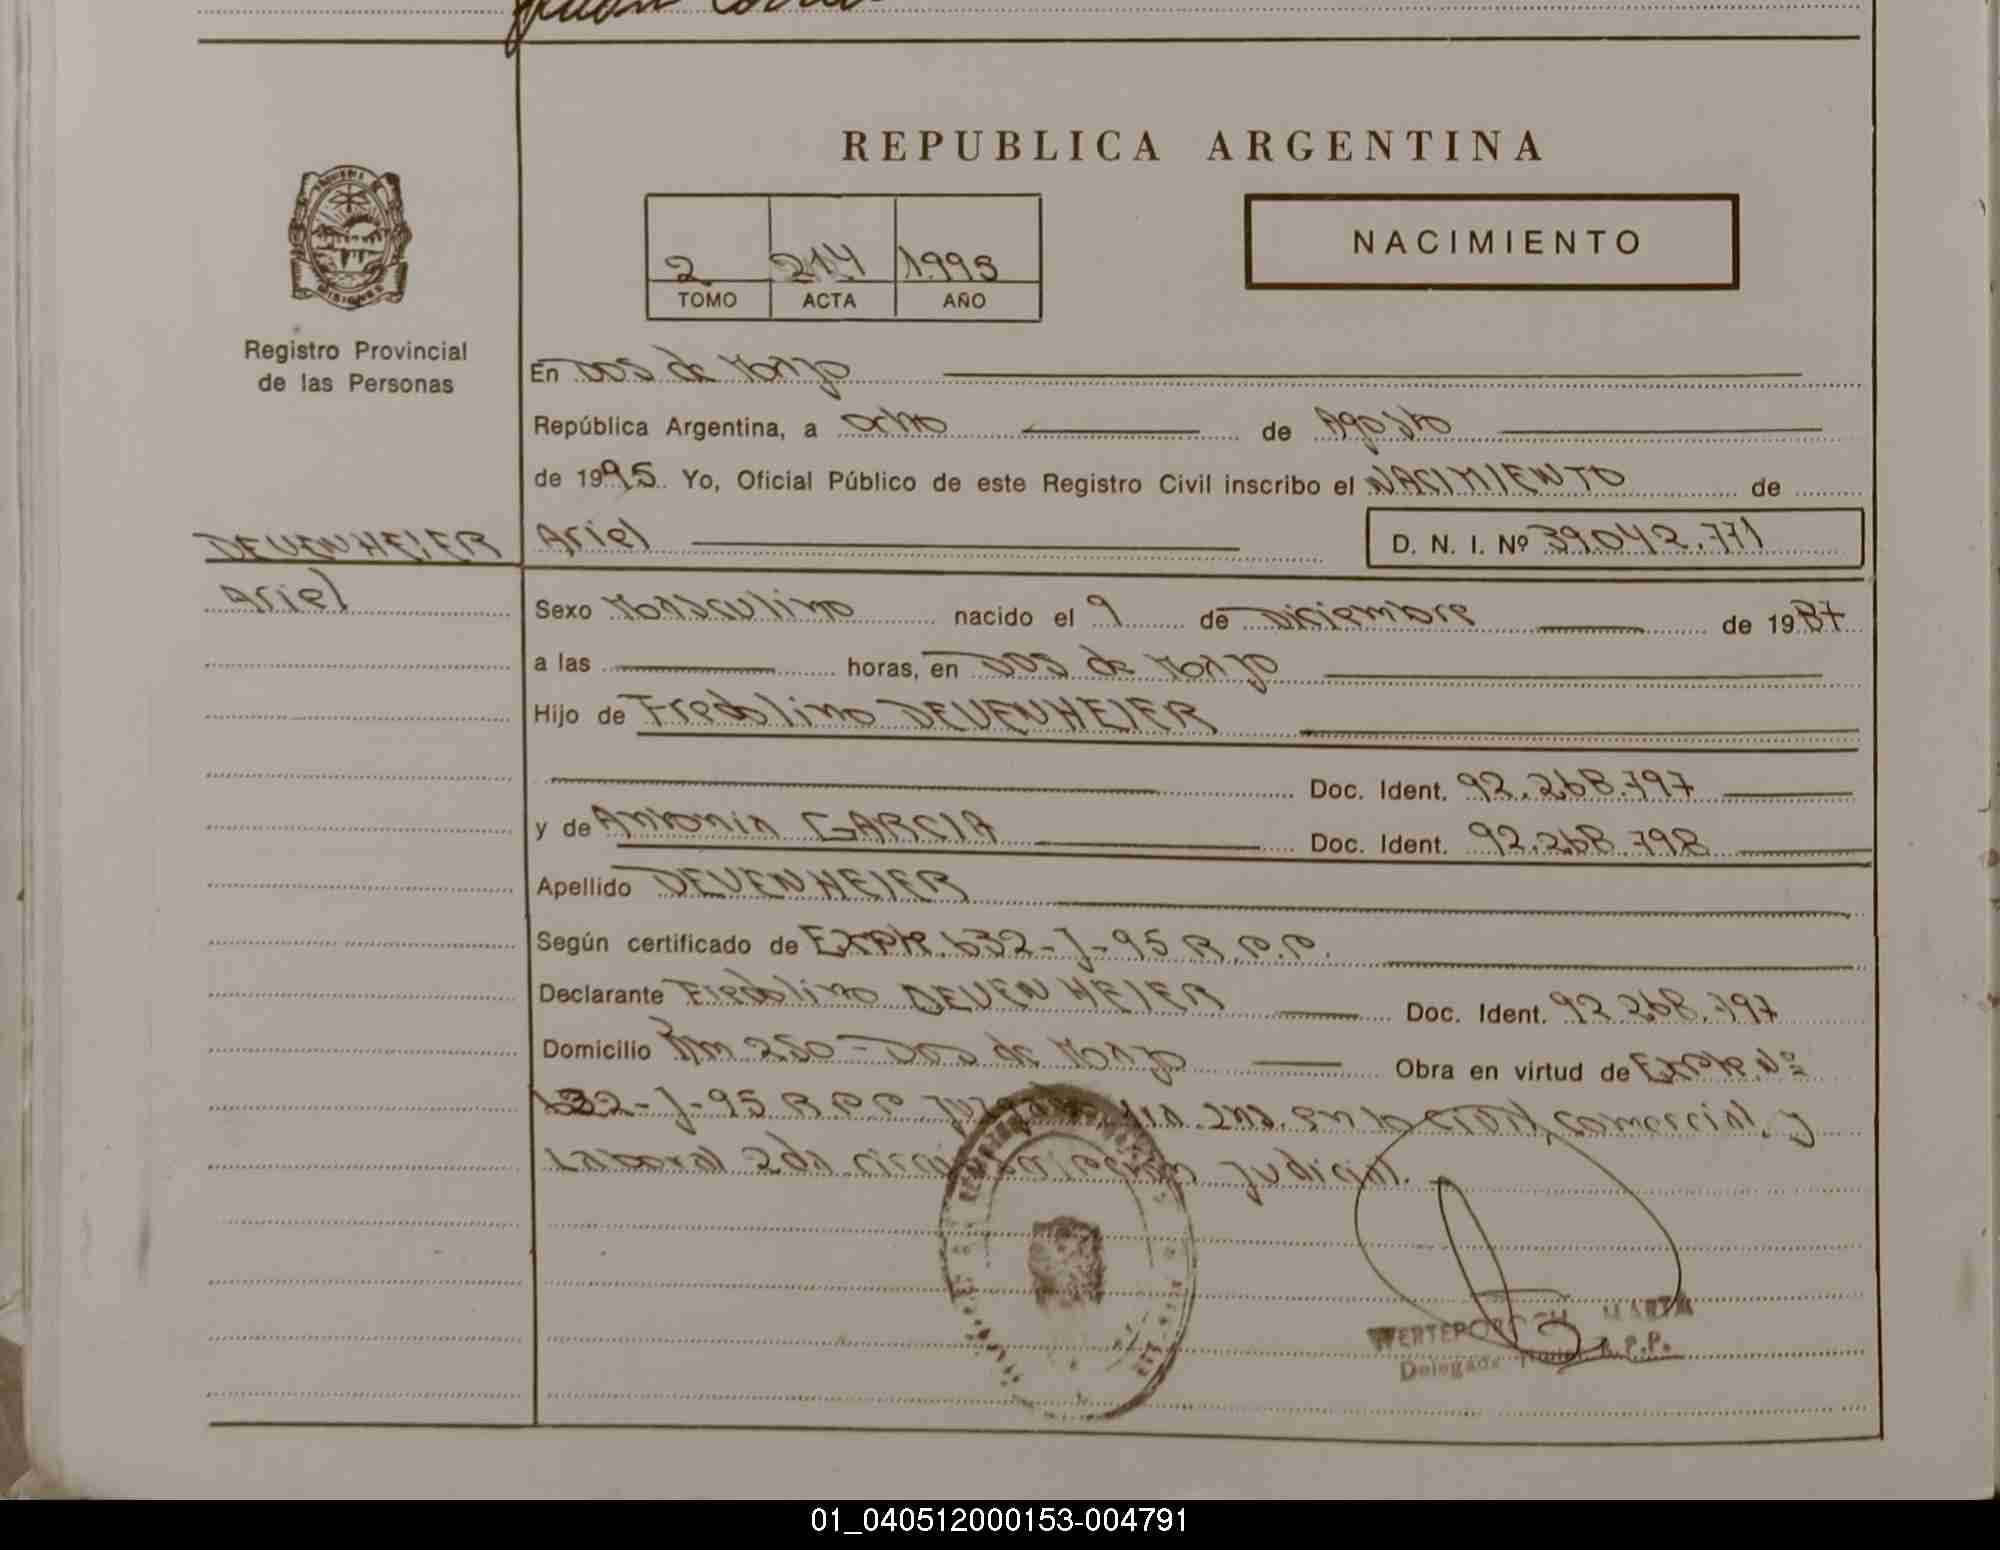 REPUBLICA ARGENTINA
NACIMIENTO
2 214 1995
TOMO ACTA AÑO
MISIONES
Registro Provincial
de las Personas
En Dos de Mayo
República Argentina, a ocho de Agosto
de 1995. Yo, Oficial Público de este Registro Civil inscribo el NACIMIENTO de
DEVENHEIER
Ariel
Ariel D. N. I. Nº 39042.771
Sexo Masculino nacido el 9 de Diciembre de 1987
a las horas, en Dos de Mayo
Hijo de Fredolino DEVENHEIER
Doc. Ident. 92.268.797
y de Antonia GARCIA Doc. Ident. 92.268.798
Apellido DEVENHEIER
Según certificado de Expte. 632-J-95 R.P.P.
Declarante Fredolino DEVENHEIER Doc. Ident. 92 268.797
Domicilio Km 250 - Dos de Mayo Obra en virtud de Expte. Nº
632-J-95 R.P.P. Juzgado 1ra. Ins. en lo Civil, Comercial, y
Laboral 2da circunscripción Judicial.
MARTA
Delegada R.P.P.
01_040512000153-004791